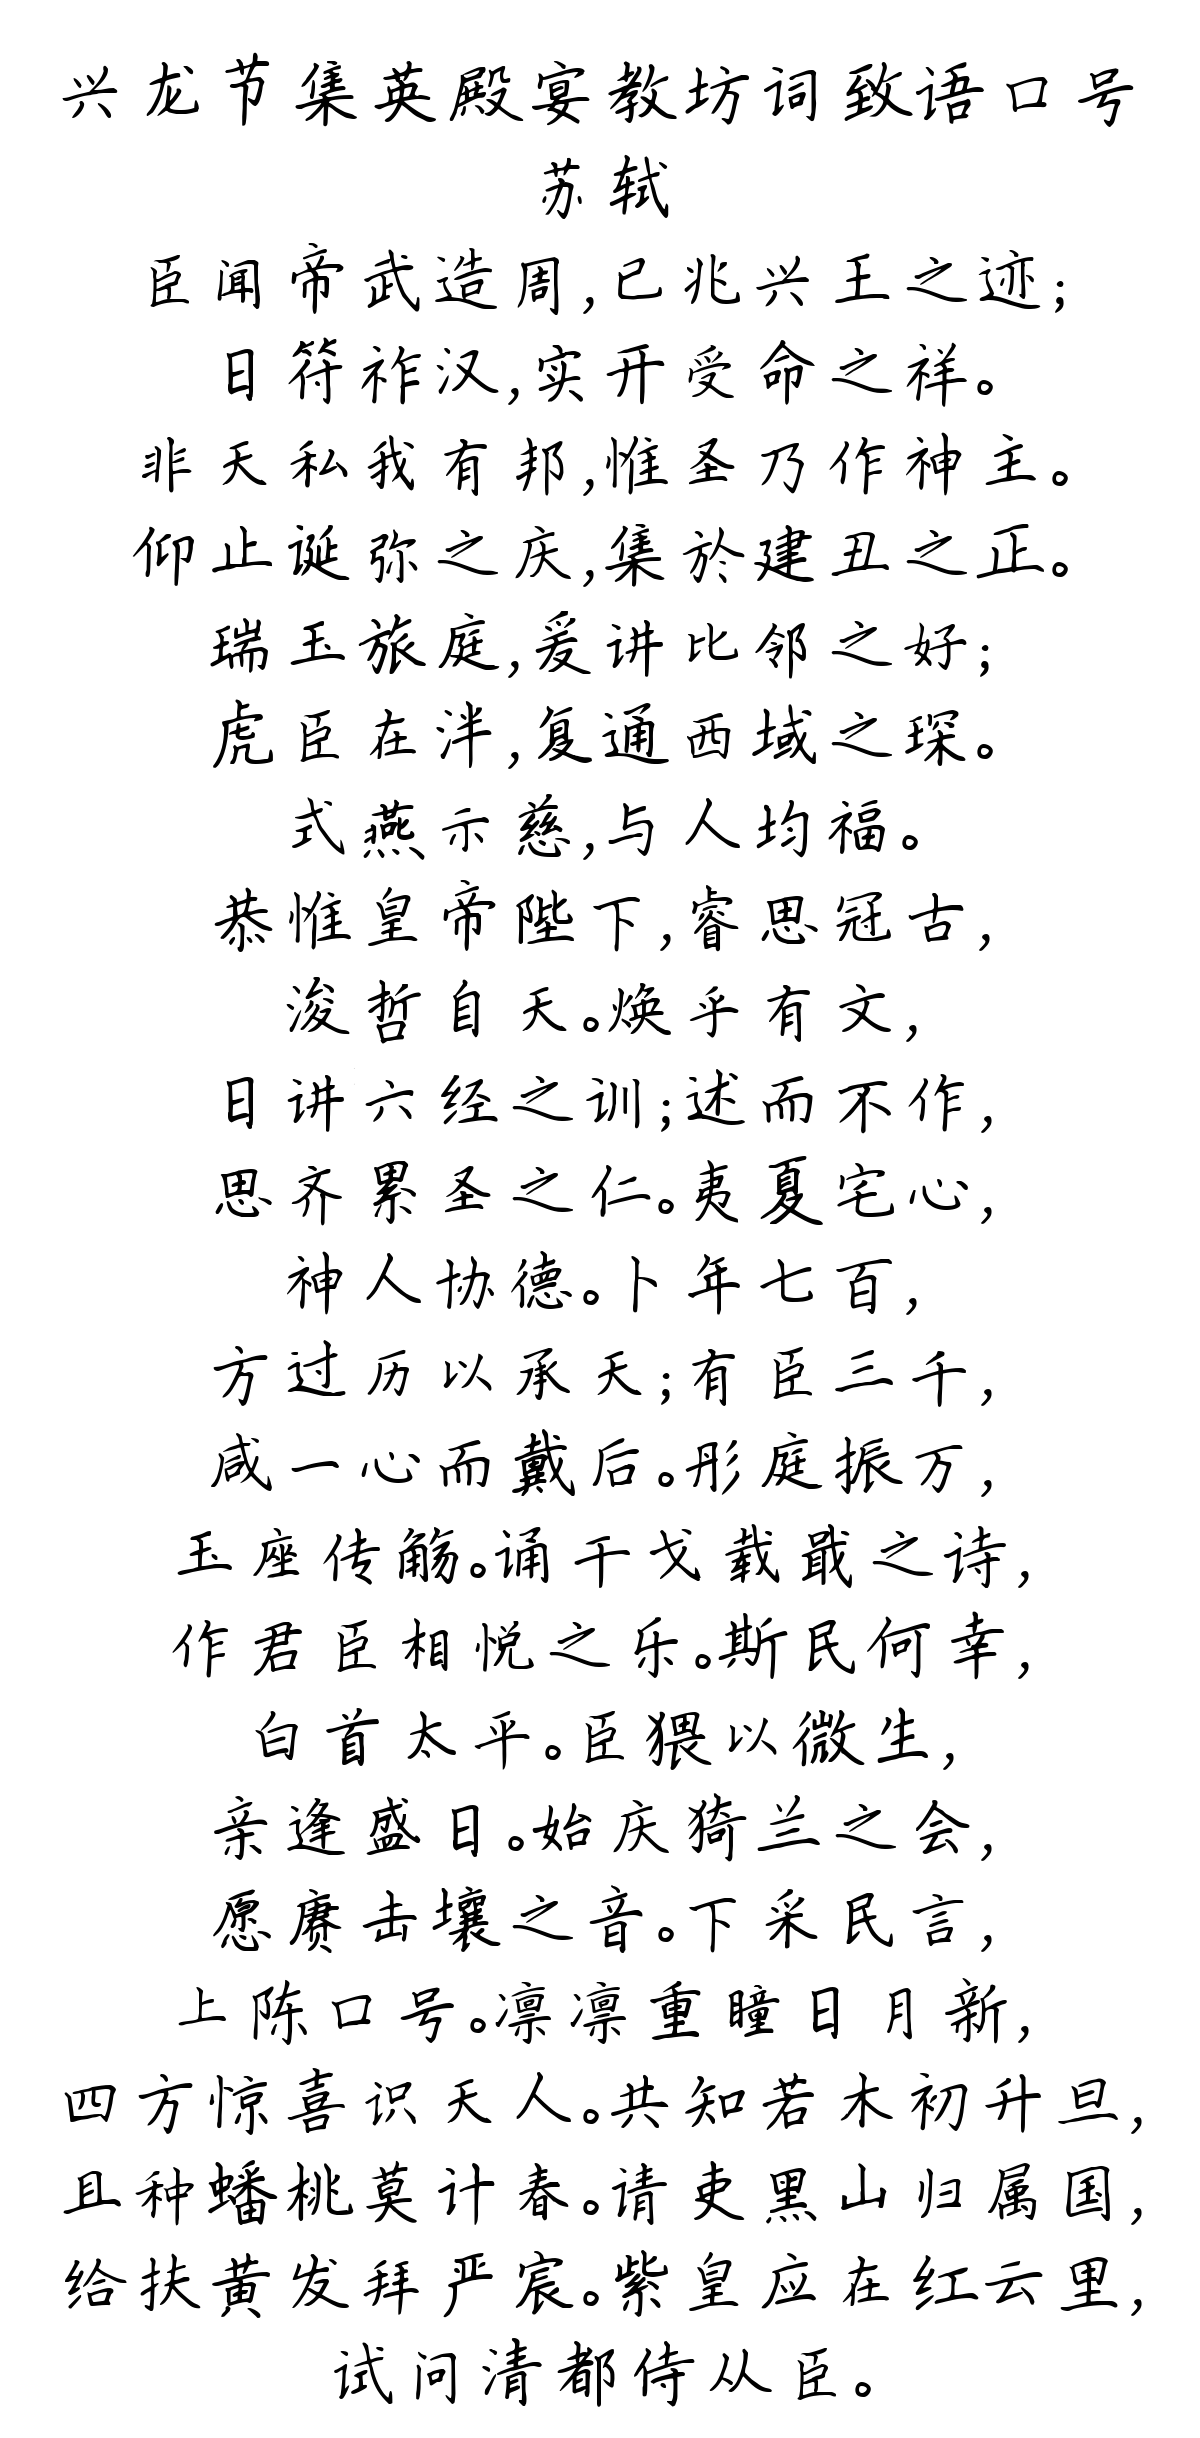 兴龙节集英殿宴教坊词致语口号
苏轼
臣闻帝武造周,已兆兴王之迹;
日符祚汉,实开受命之祥。
非天私我有邦,惟圣乃作神主。
仰止诞弥之庆,集於建丑之正。
瑞玉旅庭,爰讲比邻之好;
虎臣在泮,复通西域之琛。
式燕示慈,与人均福。
恭惟皇帝陛下,睿思冠古,
浚哲自天。焕乎有文,
日讲六经之训;述而不作,
思齐累圣之仁。夷夏宅心,
神人协德。卜年七百,
方过历以承天;有臣三千,
咸一心而戴后。彤庭振万,
玉座传觞。诵干戈载戢之诗,
作君臣相悦之乐。斯民何幸,
白首太平。臣猥以微生,
亲逢盛日。始庆猗兰之会,
愿赓击壤之音。下采民言,
上陈口号。凛凛重瞳日月新,
四方惊喜识天人。共知若木初升旦,
且种蟠桃莫计春。请吏黑山归属国,
给扶黄发拜严宸。紫皇应在红云里,
试问清都侍从臣。